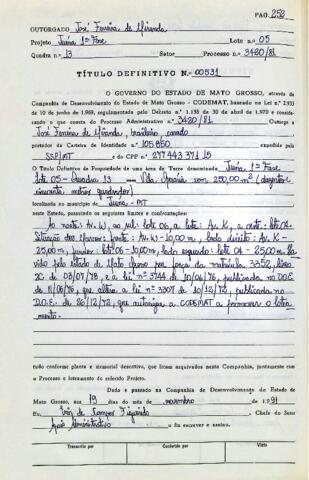 PAG. 253
OUTORGADO José Ferreira de Miranda
Projeto Juína 1ª Fase Lote n.º 05
Quadra n.º 13 Setor Processo n.º 3420/81
TÍTULO DEFINITIVO N.º 00531
O GOVERNO DO ESTADO DE MATO GROSSO, através da
Companhia de Desenvolvimento do Estado de Mato Grosso - CODEMAT, baseado na Lei n.º 2.933
de 10 de junho de 1969, regulamentado pelo Decreto n.º 1.138 de 30 de abril de 1970 e consi-
rando o que consta do Processo Administrativo n.º 3420/81 Outorga a
José Ferreira de Miranda, brasileiro, casado
portador da Carteira de Identidade n.º 105850
SSP/MT e do CPF n.º 277 443 371 15
O Título Definitivo de Propriedade de uma área de Terra denominado Juína 1ª Fase
lote 05 - Quadra 13 com 250,00 m² (duzentos e
cincoenta metros quadrados)
localizado no município de Juína - MT
neste Estado, passando os seguintes limites e confrontações:
Ao norte: Av. W, ao sul: lote 06, a leste: Av. K, a oeste: lote 04.
Situação dos Marcos: frente: Av. W - 10,00 m, lado direito: Av. K -
25,00 m, fundos: lote 06 - 10,00 m, lado esquerdo: lote 04 - 25,00 m. Ha
vido pelo Estado de Mato Grosso por força da matrícula 3352, livro
2C de 03/07/78, e a lei nº 3744 de 10/06/76, publicada no D.O.E.
11/06/76, que altera a lei nº 3307 de 10/12/72, publicada no
D.O.E. de 26/12/72, que autoriza a CODEMAT a promover o lotea
mento.
tudo conforme planta e memorial descritivo, que ficam arquivados nesta Companhia, juntamente com
o Processo e loteamento do referido Projeto.
Dada e passada na Companhia de Desenvolvimento do Estado de
Mato Grosso, aos 19 dias do mês de novembro de 1991
Eu, de Campos Figueiredo, Chefe do Setor
Apoio Administrativo o fiz escrever e assino.
Transcrito por Conferido por Visto